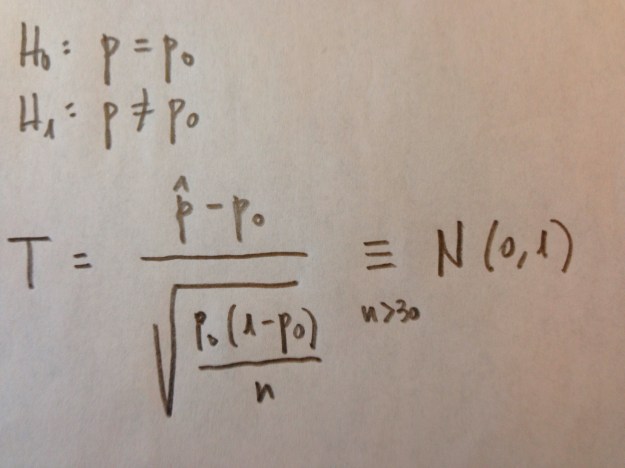 H₀: p = p₀
H₁: p ≠ p₀
T = (p̂ - p₀) / √(p₀(1-p₀)/n) ≡ N(0,1)
n>30